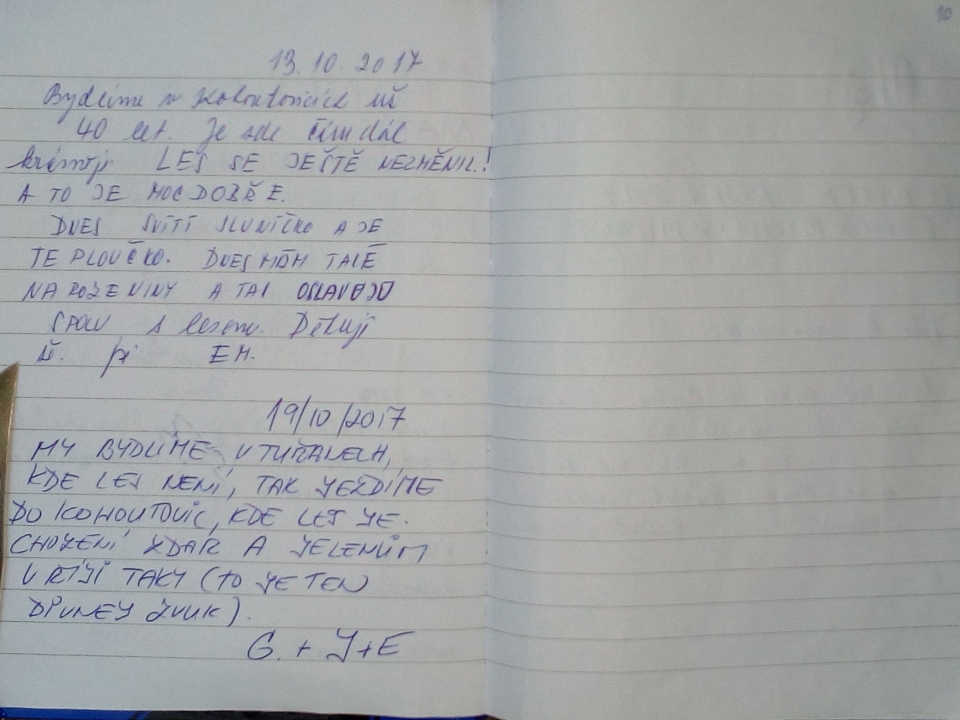 13.10.2017
Bydlíme v Kohoutovicích už
40 let. Je zde čím dál
krásněji LES SE JEŠTĚ NEZMĚNIL!
A TO JE MOC DOBŘE.
DNES SVÍTÍ SLUNÍČKO A JE
TEPLOUČKO. DNES MÁM TAKÉ
NAROZENINY A TAK OSLAVUJU
SPOLU s lesem. Děkuji
EM.
19/10/2017
MY BYDLÍME V TUŘANECH,
KDE LES NENÍ, TAK JEZDÍME
DO KOHOUTOVIC, KDE LES JE.
CHOZENÍ ZDAR A JELENŮM
V ŘÍJI TAKY (TO JE TEN
DIVNEJ ZVUK).
G. + J + E
10